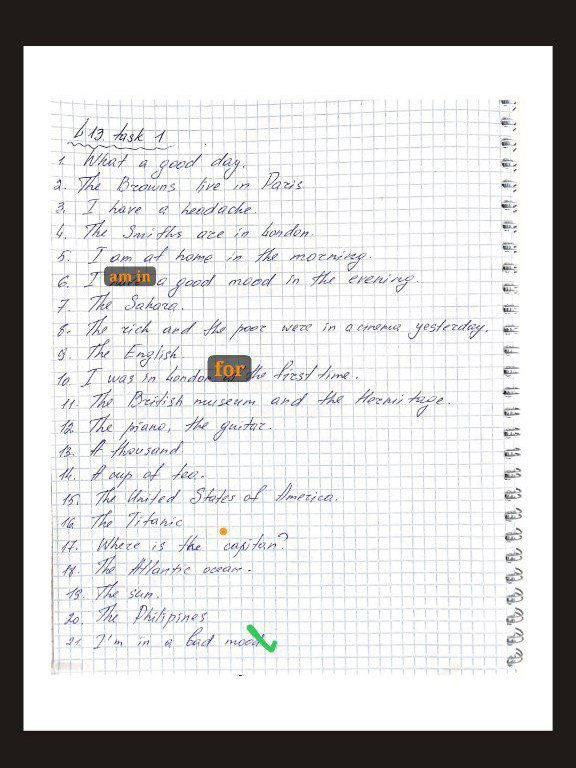 L 13 task 1
1. What a good day.
2. The Browns live in Paris
3. I have a headache.
4. The Smiths are in London.
5. I am at home in the morning.
6. I am in a good mood in the evening.
7. The Sahara.
8. The rich and the poor were in a cinema yesterday.
9. The English.
10. I was in London for the first time.
11. The British museum and the Hermitage.
12. The piano, the guitar.
13. A thousand
14. A cup of tea.
15. The United States of America.
16. The Titanic
17. Where is the capitan?
18. The Atlantic ocean.
19. The sun.
20. The Philipines
21. I'm in a bad mood